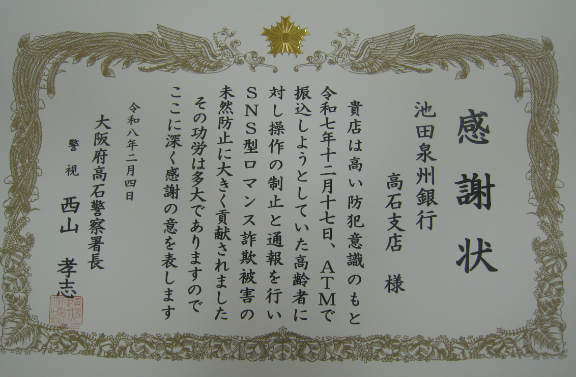 感謝状
池田泉州銀行
高石支店 様
貴店は高い防犯意識のもと
令和七年十二月十七日、ATMで
振込しようとしていた高齢者に
対し操作の制止と通報を行い
SNS型ロマンス詐欺被害の
未然防止に大きく貢献されました
その功労は多大でありますので
ここに深く感謝の意を表します
令和八年二月四日
大阪府高石警察署長
警視 西山 孝志